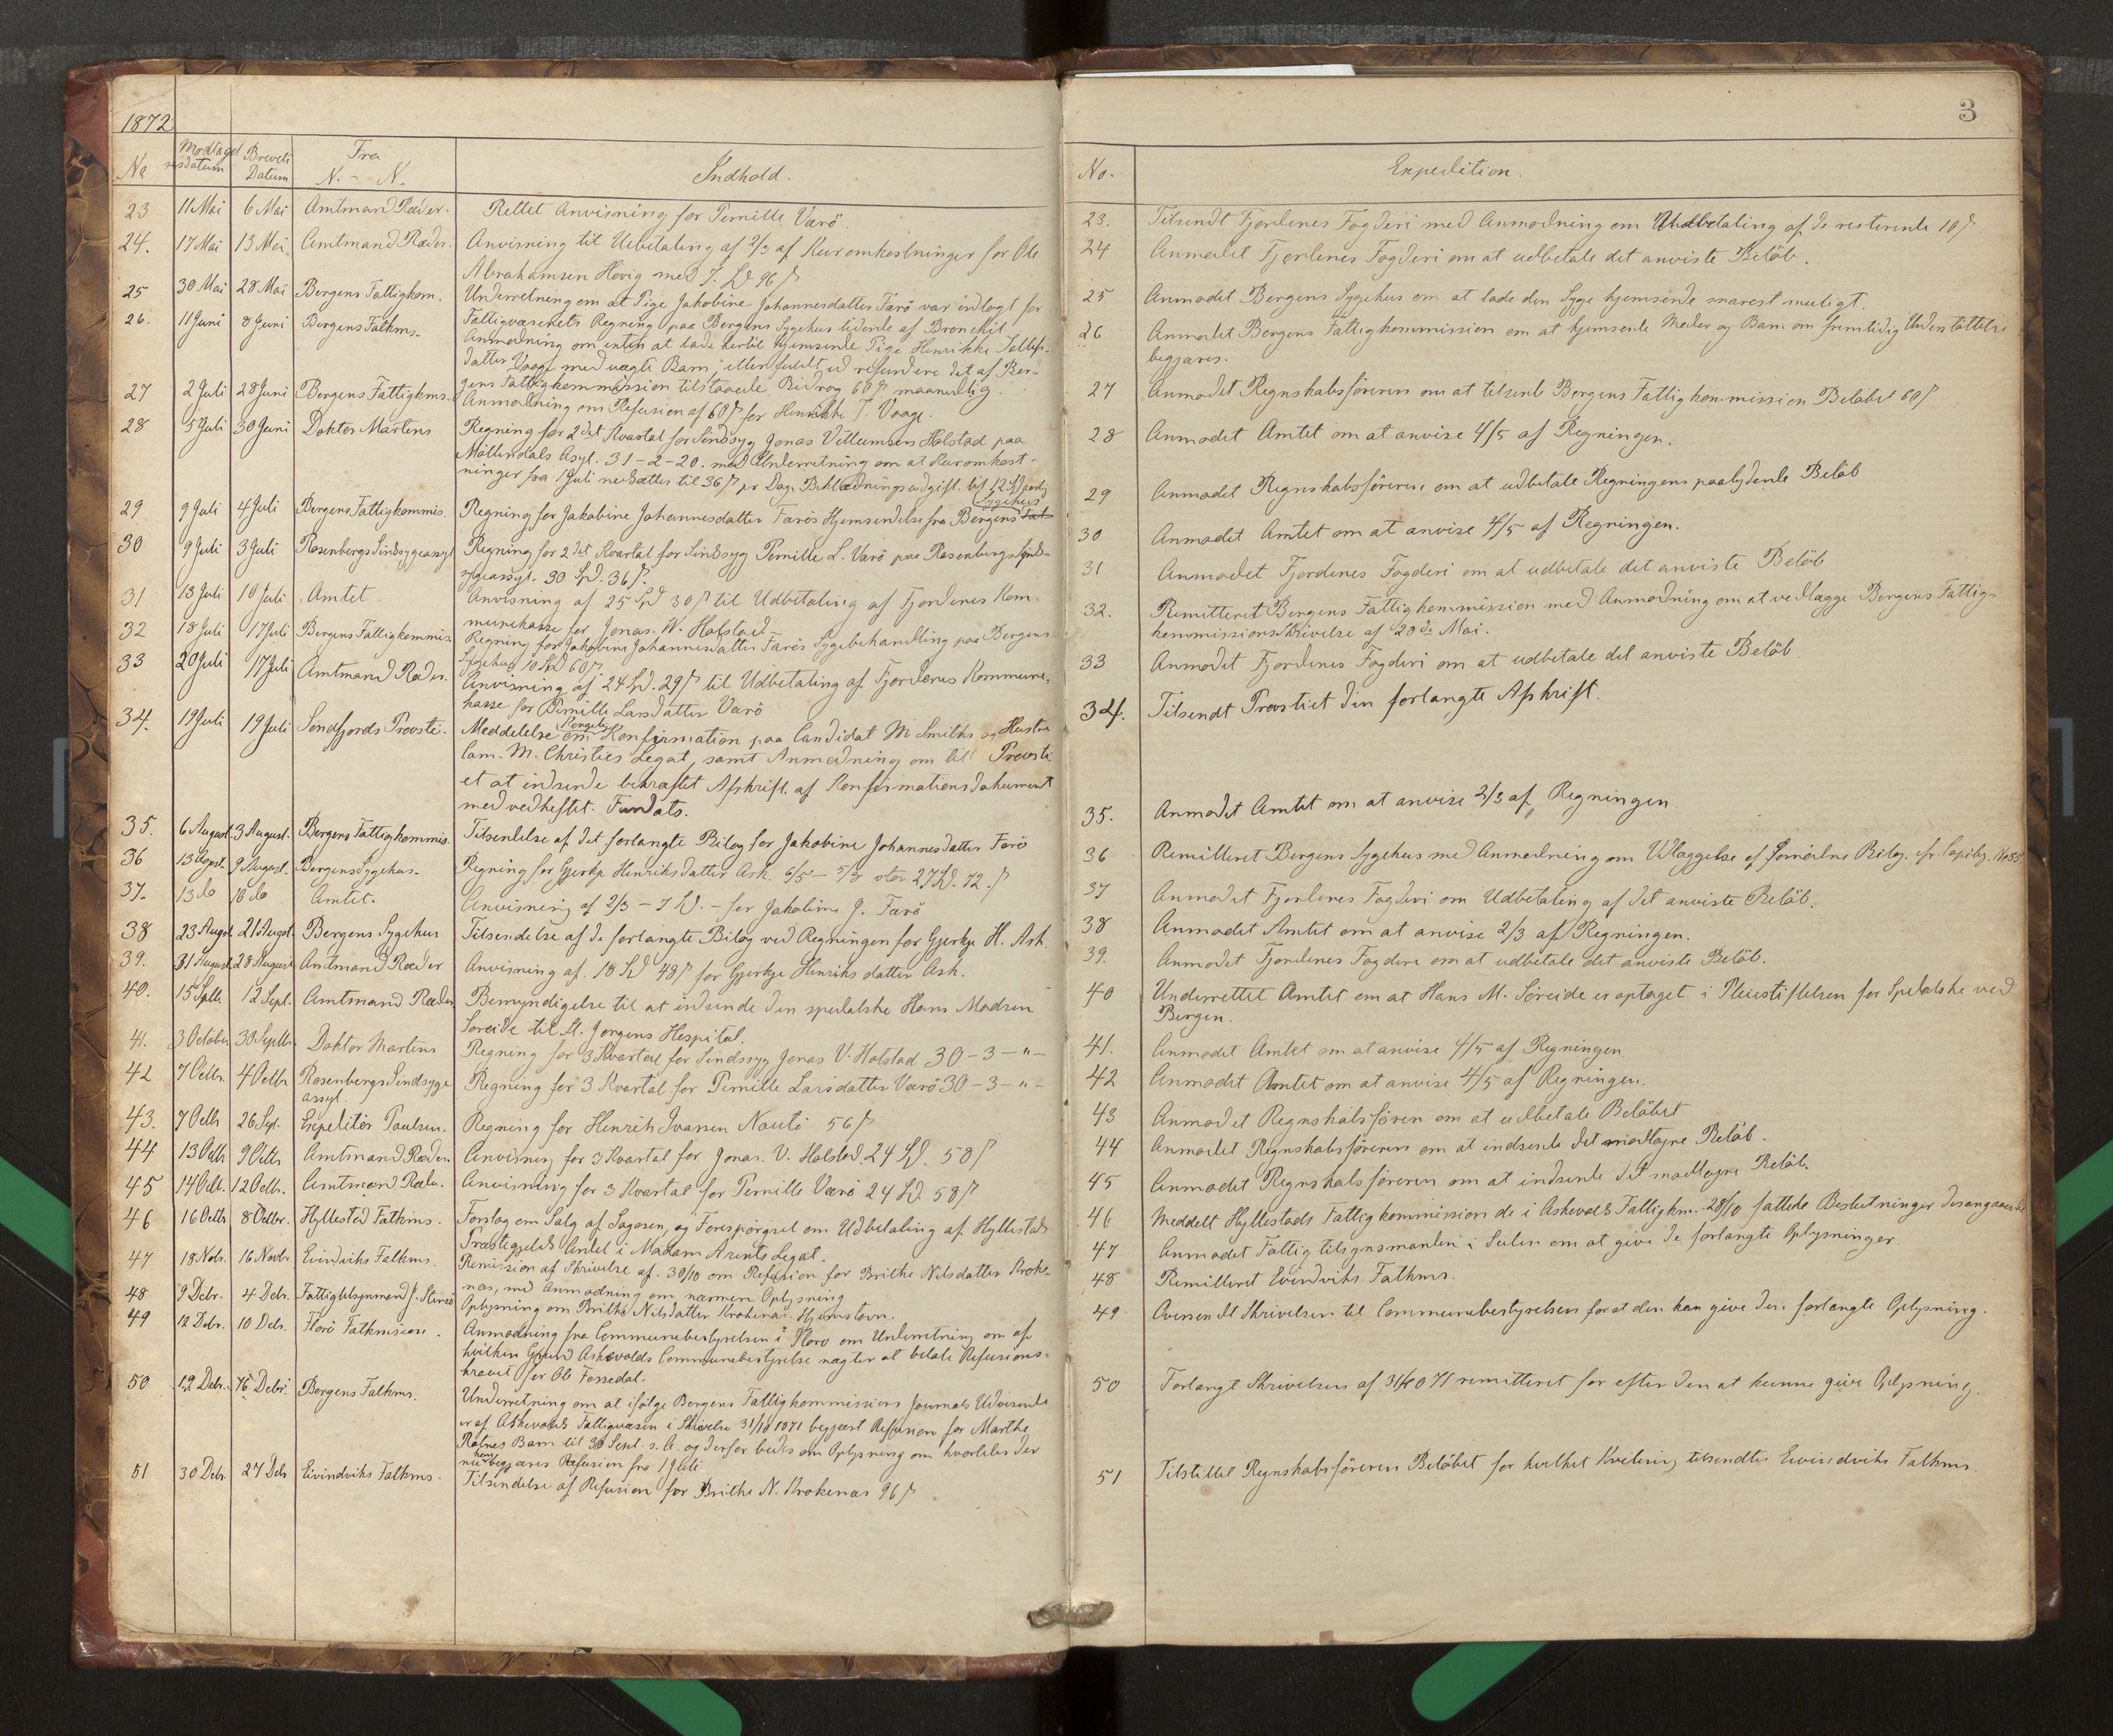 1872
No Modtagelsesdatum Brevets Datum Fra N. - N. Indhold.
23 11 Mai 6 Mai Amtmand Ræder. Rettet Anvisning for Pernille Værö.
24. 17 Mai 13 Mai Amtmand Ræder. Anvisning til Udbetaling af 2/3 af Kuromkostninger for Ole
Abrahamsen Hovig med 7. Spd 96 ß
25 30 Mai 28 Mai Bergens Fattigkom. Underretning om at Pige Jakobine Johannesdatter Færö var indlagt for
Fattigvæsenets Regning paa Bergens Sygehus lidende af Bronchit.
26. 11 Juni 8 Juni Bergens Fatkms. Anmodning om enten at lade hertil hjemsende Pige Henrikke Tollefs-
datter Vaage med uægte Barn, eller fuldt ud refundere det af Ber-
gens Fattigkommission tilstaaede Bidrag 60 ß maanedlig.
27 2 Juli 28 Juni Bergens Fattigkms. Anmodning om Refusion af 60 ß for Henrikke T. Vaage.
28 5 Juli 30 Juni Doktor Martens Regning for 2det Kvartal for Sindssyg Jonas Villumsen Hofstad paa
Möllendals Asyl. 31-2-20. med Underretning om at Kuromkost-
ninger fra 1 Juli nedsættes til 36 ß pr Dag. Beklædningsudgift. til 12 Spd
29 9 Juli 4 Juli Bergens Fattigkommis. Regning for Jakobine Johannesdatter Færös Hjemsendelse fra Bergens Sygehus
30 9 Juli 3 Juli Rosenbergs Sindsygeasyl Regning for 2det Kvartal for Sindssyg Pernille L. Værö paa Rosenbergs Sinds-
sygeasyl. 30 Spd. 36 ß.
31 13 Juli 10 Juli Amtet Anvisning af 25 Spd 30 ß til Udbetaling af Fjordenes Kom-
munekasse for Jonas. W. Hofstad.
32 18 Juli 17 Juli Bergens Fattigkommis Regning for Jakobine Johannesdatter Færös Sygebehandling paa Bergens
Sygehus 10 Spd 60 ß
33 20 Juli 17 Juli Amtmand Ræder. Anvisning af 24 Spd. 29 ß til Udbetaling af Fjordenes Kommune-
kasse for Pernille Larsdatter Værö
34. 19 Juli 19 Juli Söndfjords Provsti. Meddelelse om Kongelig Konfirmation paa Candidat M Smiths og Hustru
Cam. M. Christies Legat, samt Anmodning om til Provsti
et at indsende bekræftet Afskrift af Konfirmationsdokument
med vedheftet. Fundats.
35. 6 August. 3 August. Bergens Fattigkommis. Tilsendelse af det forlangte Bilag for Jakobine Johannesdatter Færö
36 13 August. 9 August. Bergens Sygehus. Regning for Gjertje Henriksdatter Ask. 6/5 - 5/8 stor 27 Spd. 72. ß
37. 13 do 10 do Amtet. Anvisning af 2/3 - 7 Spd. - for Jakobine J. Færö
38 23 August. 21 August. Bergens Sygehus Tilsendelse af de forlangte Bilag ved Regningen for Gjertje H. Ask.
39. 31 August 28 August Amtmand Ræder Anvisning af. 18 Spd 48 ß for Gjertje Hinriksdatter Ask.
40. 15 Septb. 12 Sept. Amtmand Ræder Bemyndigelse til at indsende den spedalske Hans Madsen
Söreide til St. Jörgens Hospital.
41. 3 October 30 Septb. Doktor Martens Regning for 3 Kvartal for Sindssyg Jonas V. Hofstad 30-3-"-
42 7 Octbr. 4 Octbr Rosenbergs Sindsyge asyl. Regning for 3 Kvartal for Pernille Larsdatter Værö 30-3-"-
43. 7 Octb 26 Sept. Expeditör Paulsen. Regning for Henrik Ivarsen Nautö 56 ß
44 13 Octb 9 Octb Amtmand Ræder. Anvisning for 3 Kvartal for Jonas. V. Hofstad. 24 Spd. 58 ß
45 14 Octb. 12 Octb. Amtmand Ræder. Anvisning for 3 Kvartal for Pernille Værö 24 Spd. 58 ß
46 16 Octb 8 Octbr. Hyllestad Fatkms. Forslag om Salg af Sagosen, og Forespörgsel om Udbetaling af Hyllestads
Præstegjelds Andel i Madam Arents Legat.
47 18 Novbr. 16 Novbr Evindviks Fatkms. Remission af Skrivelse af. 30/10 om Refusion for Brithe Nilsdatter Krok-
næs, med Anmodning om nærmere Oplysning
48 9 Debr. 4 Debr. Fattigtilsynsmand J. Oplysning om Brithe Nilsdatter Krokenæs. Hjemstavn.
49 12 Debr. 10 Debr. Florö Fatkmsion. Anmodning fra Communebestyrelsen i Florö om Underretning om af
hvilken Grund Askevolds Communebestyrelse nægter at betale Refusions-
kravet for Ole Fossedal.
50 19 Debr. 16 Debr. Bergens Fatkms. Underretning om at ifölge Bergens Fattigkommissions Journals Udvisende
er af Askevolds Fattigvæsen i Skrivelse 31/10 1871 begjært Refusion for Marthe
Rotnes Barn til 30 Sept. s. A. og derfor bedes om Oplysning om hvorledes der
nu begjæres Refusion fra 1 Juli
51 30 Debr 27 Debr Eivindviks Fatkms. Tilsendelse af Refusion for Brithe N. Krokenæs 96 ß
3
No. Expedition.
23. Tilsendt Fjordenes Fogderi med Anmodning om Udbetaling af de resterende 10 ß.
24 Anmodet Fjordenes Fogderi om at udbetale det anviste Belöb.
25 Anmodet Bergens Sygehus om at lade den Syge hjemsende snarest muligt.
26 Anmodet Bergens Fattigkommission om at hjemsende Moder og Barn om fremtidig Understöttelse
begjæres.
27 Anmodet Regnskabsföreren om at tilsende Bergens Fattigkommission Belöbet 60 ß
28 Anmodet Amtet om at anvise 4/5 af Regningen.
29 Anmodet Regnskabsföreren om at udbetale Regningens paalydende Belöb
30 Anmodet Amtet om at anvise 4/5 af Regningen.
31 Anmodet Fjordenes Fogderi om at udbetale det anviste Belöb
32. Remitteret Bergens Fattigkommission med Anmodning om at vedlægge Bergens Fattig-
kommissions Skrivelse af 28de Mai.
33 Anmodet Fjordenes Fogderi om at udbetale det anviste Belöb
34. Tilsendt Provstiet den forlangte Afskrift.
35. Anmodet Amtet om at anvise 2/3 af Regningen.
36 Remitteret Bergens Sygehus med Anmodning om Vedlæggelse af fornödne Bilag. cfr Copibog. No 55
37 Anmodet Fjordenes Fogderi om Udbetaling af det anviste Belöb.
38 Anmodet Amtet om at anvise 2/3 af Regningen.
39. Anmodet Fjordenes Fogderi om at udbetale det anviste Belöb.
40 Underrettet Amtet om at Hans M. Söreide er optaget i Pleiestiftelsen for Spedalske ved
Bergen.
41. Anmodet Amtet om at anvise 4/5 af Regningen
42 Anmodet Amtet om at anvise 4/5 af Regningen.
43 Anmodet Regnskabsföreren om at udbetale Belöbet
44 Anmodet Regnskabsföreren om at indsende det modtagne Belöb.
45 Anmodet Regnskabsföreren om at indsende det modtagne Belöb.
46 Meddelt Hyllestads Fattigkommission de i Askevolds Fattigkm. 28/10 fattede Beslutninger desangaaende
47 Anmodet Fattigtilsynsmanden i Sulen om at give de forlangte Oplysninger.
48 Remitteret Evindviks Fatkms.
49 Oversendt Skrivelsen til Communebestyrelsen for at den kan give den forlangte Oplysning.
50 Forlangt Skrivelsen af 31/10 71 remitteret for efter den at kunne give Oplysning.
51 Tilstillet Regnskabsföreren Belöbet for hvilket Kvitering tilsendtes Eivindviks Fatkms